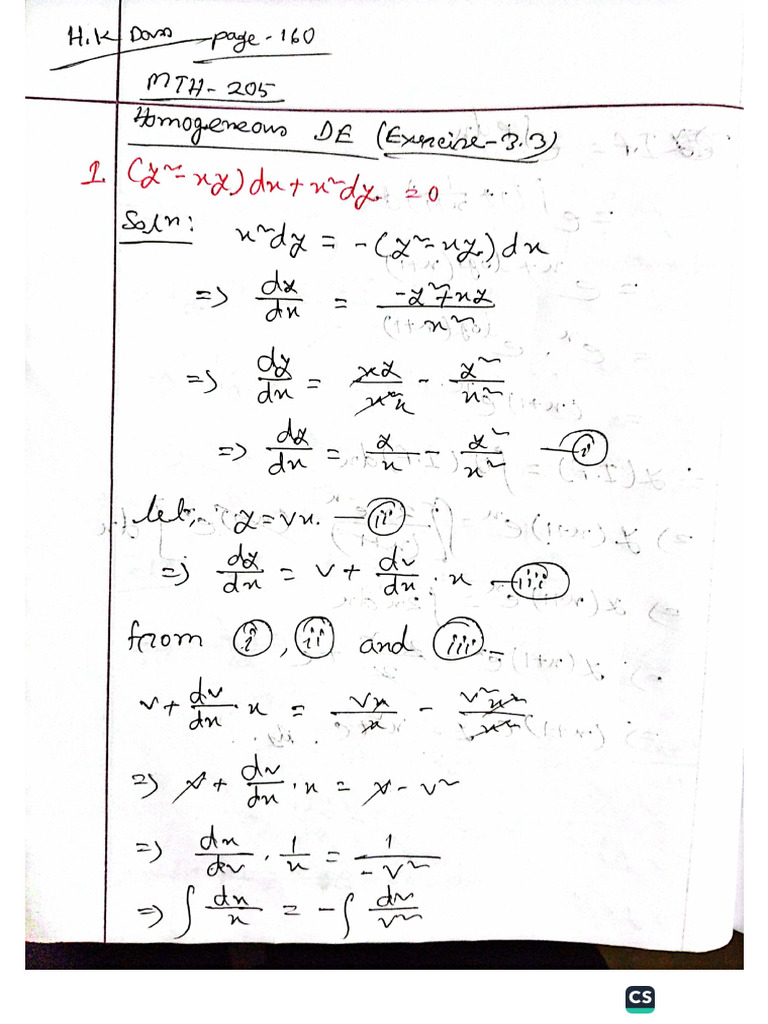 H.K Dass page-160
MTH-205
Homogeneous DE (Exercise-3.3)
1. (y² - xy) dx + x² dy = 0
Soln: x² dy = -(y² - xy) dx
=> dy/dx = (-y² + xy)/x²
=> dy/dx = xy/x·x - y²/x²
=> dy/dx = y/x - y²/x² — (i)
let, y = vx. — (ii)
=> dy/dx = v + dv/dx · x — (iii)
from (i), (ii) and (iii) -
v + dv/dx · x = vx/x - v²x²/x²
=> v + dv/dx · x = v - v²
=> dx/dv · 1/x = 1/-v²
=> ∫ dx/x = -∫ dv/v²
CS